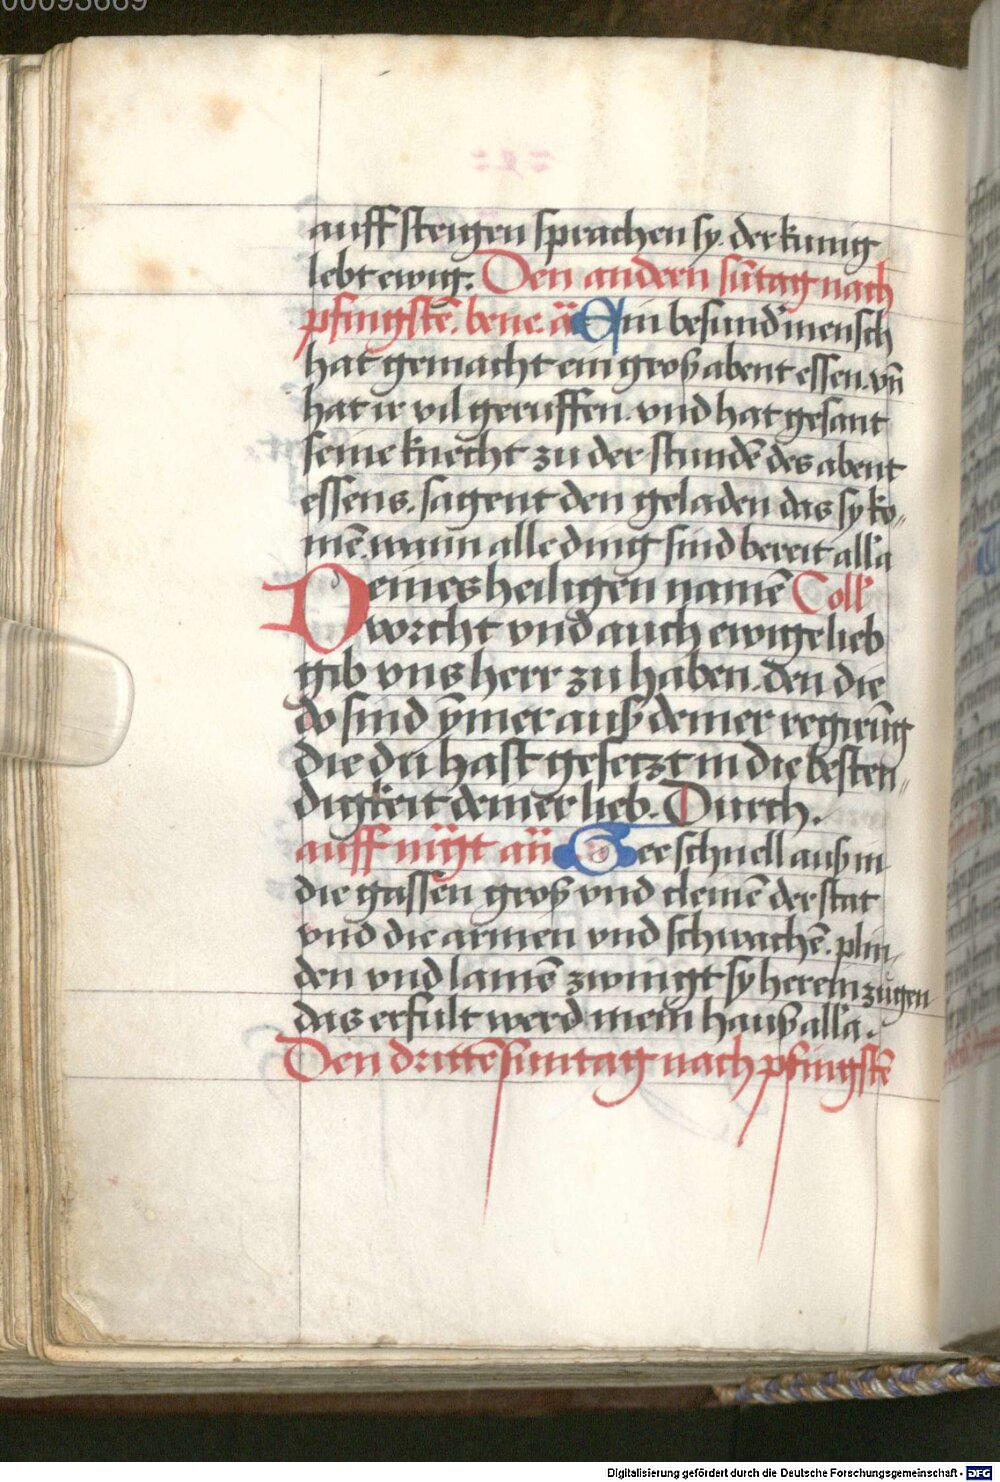 00093669
auff steigen sprachen sy. der kunig
lebt ewig. Den andern sūtag nach
pfingstē. bene. ā Ein besund' mensch
hat gemacht ein groß abent essen. vn̄
hat ir vil geruffen. vnd hat gesant
seine knecht zu der stundē des abent
essens. sagent den geladen das sy ko„
mē. wann alle ding sind bereit all'a
Deines heiligen namē Coll'
vorcht vnd auch ewige lieb
gib vns herr zu haben. den die
do sind ÿmer auß deiner regirūg
die du hast gesetzt in die besten„
digkeit deiner lieb. Durch.
auff mḡt añ Gee schnell auß in
die gassen groß vnd cleinē der stat
vnd die armen vnd schwachē. plin„
den vnd lamē zwingt sy herein zugen
das erfult werd mein hauß all'a.
Den drittē suntag nach pfingstē
Digitalisierung gefördert durch die Deutsche Forschungsgemeinschaft - DFG